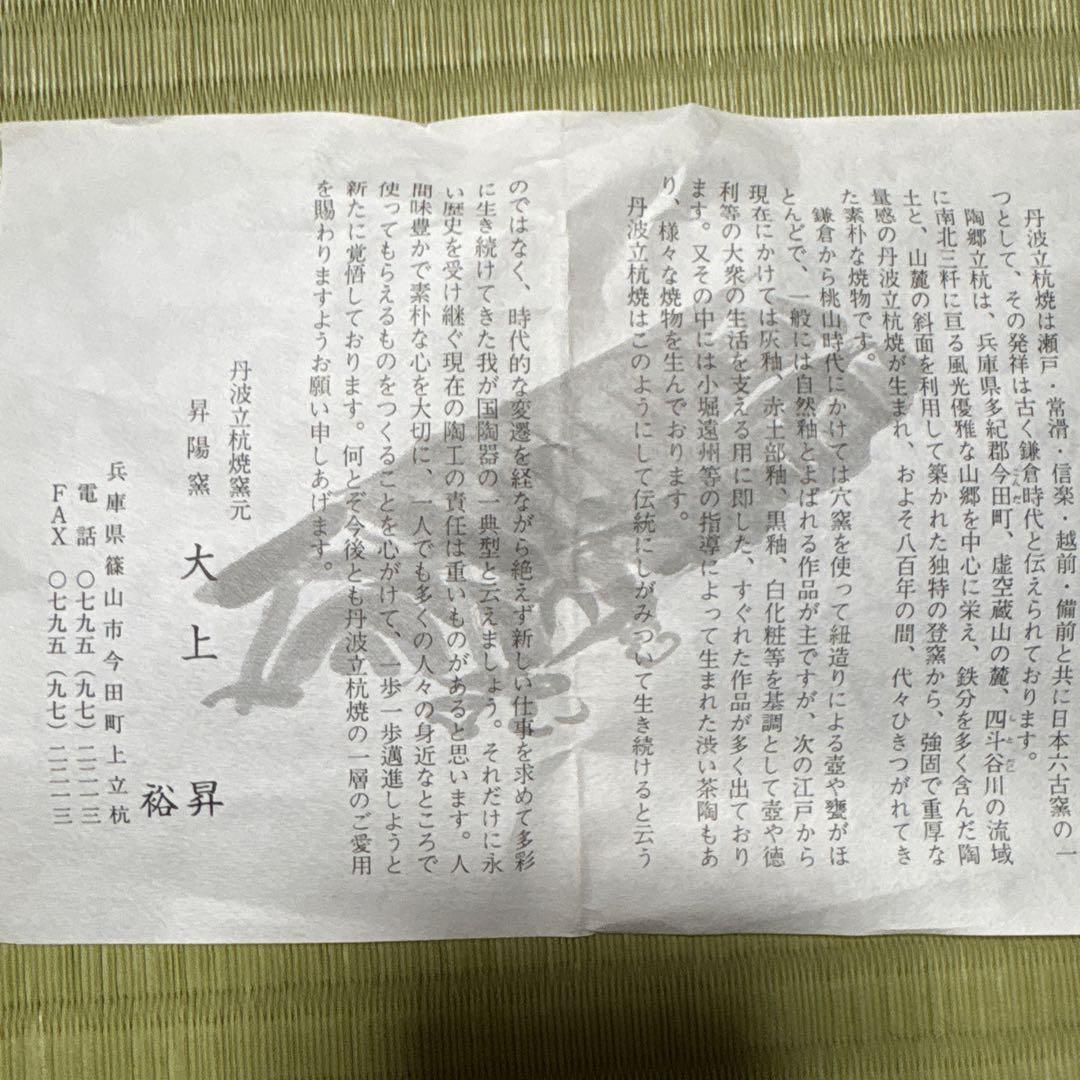 丹波立杭焼は瀬戸・常滑・信楽・越前・備前と共に日本六古窯の一
つとして、その発祥は古く鎌倉時代と伝えられております。
陶郷立杭は、兵庫県多紀郡今田町、虚空蔵山の麓、四斗谷川の流域
に南北三粁に亘る風光優雅な山郷を中心に栄え、鉄分を多く含んだ陶
土と、山麓の斜面を利用して築かれた独特の登窯から、強固で重厚な
量感の丹波立杭焼が生まれ、およそ八百年の間、代々ひきつがれてき
た素朴な焼物です。
鎌倉から桃山時代にかけては穴窯を使って紐造りによる壺や甕がほ
とんどで、一般には自然釉とよばれる作品が主ですが、次の江戸から
現在にかけては灰釉、赤土部釉、黒釉、白化粧等を基調として壺や徳
利等の大衆の生活を支える用に即した、すぐれた作品が多く出ており
ます。又その中には小堀遠州等の指導によって生まれた渋い茶陶もあ
り、様々な焼物を生んでおります。
丹波立杭焼はこのようにして伝統にしがみついて生き続けると云う
のではなく、時代的な変遷を経ながら絶えず新しい仕事を求めて多彩
に生き続けてきた我が国陶器の一典型と云えましょう。それだけに永
い歴史を受け継ぐ現在の陶工の責任は重いものがあると思います。人
間味豊かで素朴な心を大切に、一人でも多くの人々の身近なところで
使ってもらえるものをつくることを心がけて、一歩一歩邁進しようと
新たに覚悟しております。何とぞ今後とも丹波立杭焼の一層のご愛用
を賜わりますようお願い申しあげます。
丹波立杭焼窯元
昇陽窯 大上 昇
裕
兵庫県篠山市今田町上立杭
電話 〇七九五(九七)二二一三
FAX 〇七九五(九七)二二一三